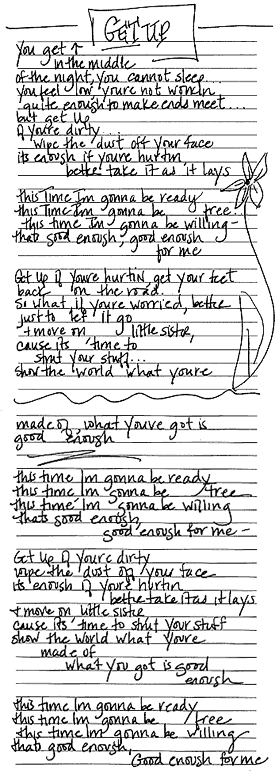 GET UP
You get ↑
in the middle
of the night, you cannot sleep...
you feel low you're not workin
quite enough to make ends meet....
but get up
if you're dirty...
wipe the dust off your face
its enough if you're hurtin
better take it as it lays
this time Im gonna be ready
this time Im gonna be free
this time Im gonna be willing -
thats good enough, good enough
for me
Get up if youre hurtin get your feet
back on the road...
so what if you're worried, better
just to let it go
+ move on little sister,
cause its time to
strut your stuff...
show the world what youre
made of, what youve got is
good enough
this time Im gonna be ready
this time Im gonna be free
this time Im gonna be willing
thats good enough,
good enough for me -
Get up if you're dirty
wipe the dust off your face
its enough if your hurtin
better take it as it lays
+ move on little sister
cause its time to strut your stuff
show the world what youre
made of
what you got is good
enough
this time Im gonna be ready
this time Im gonna be free
this time Im gonna be willing
thats good enough,
Good enough for me